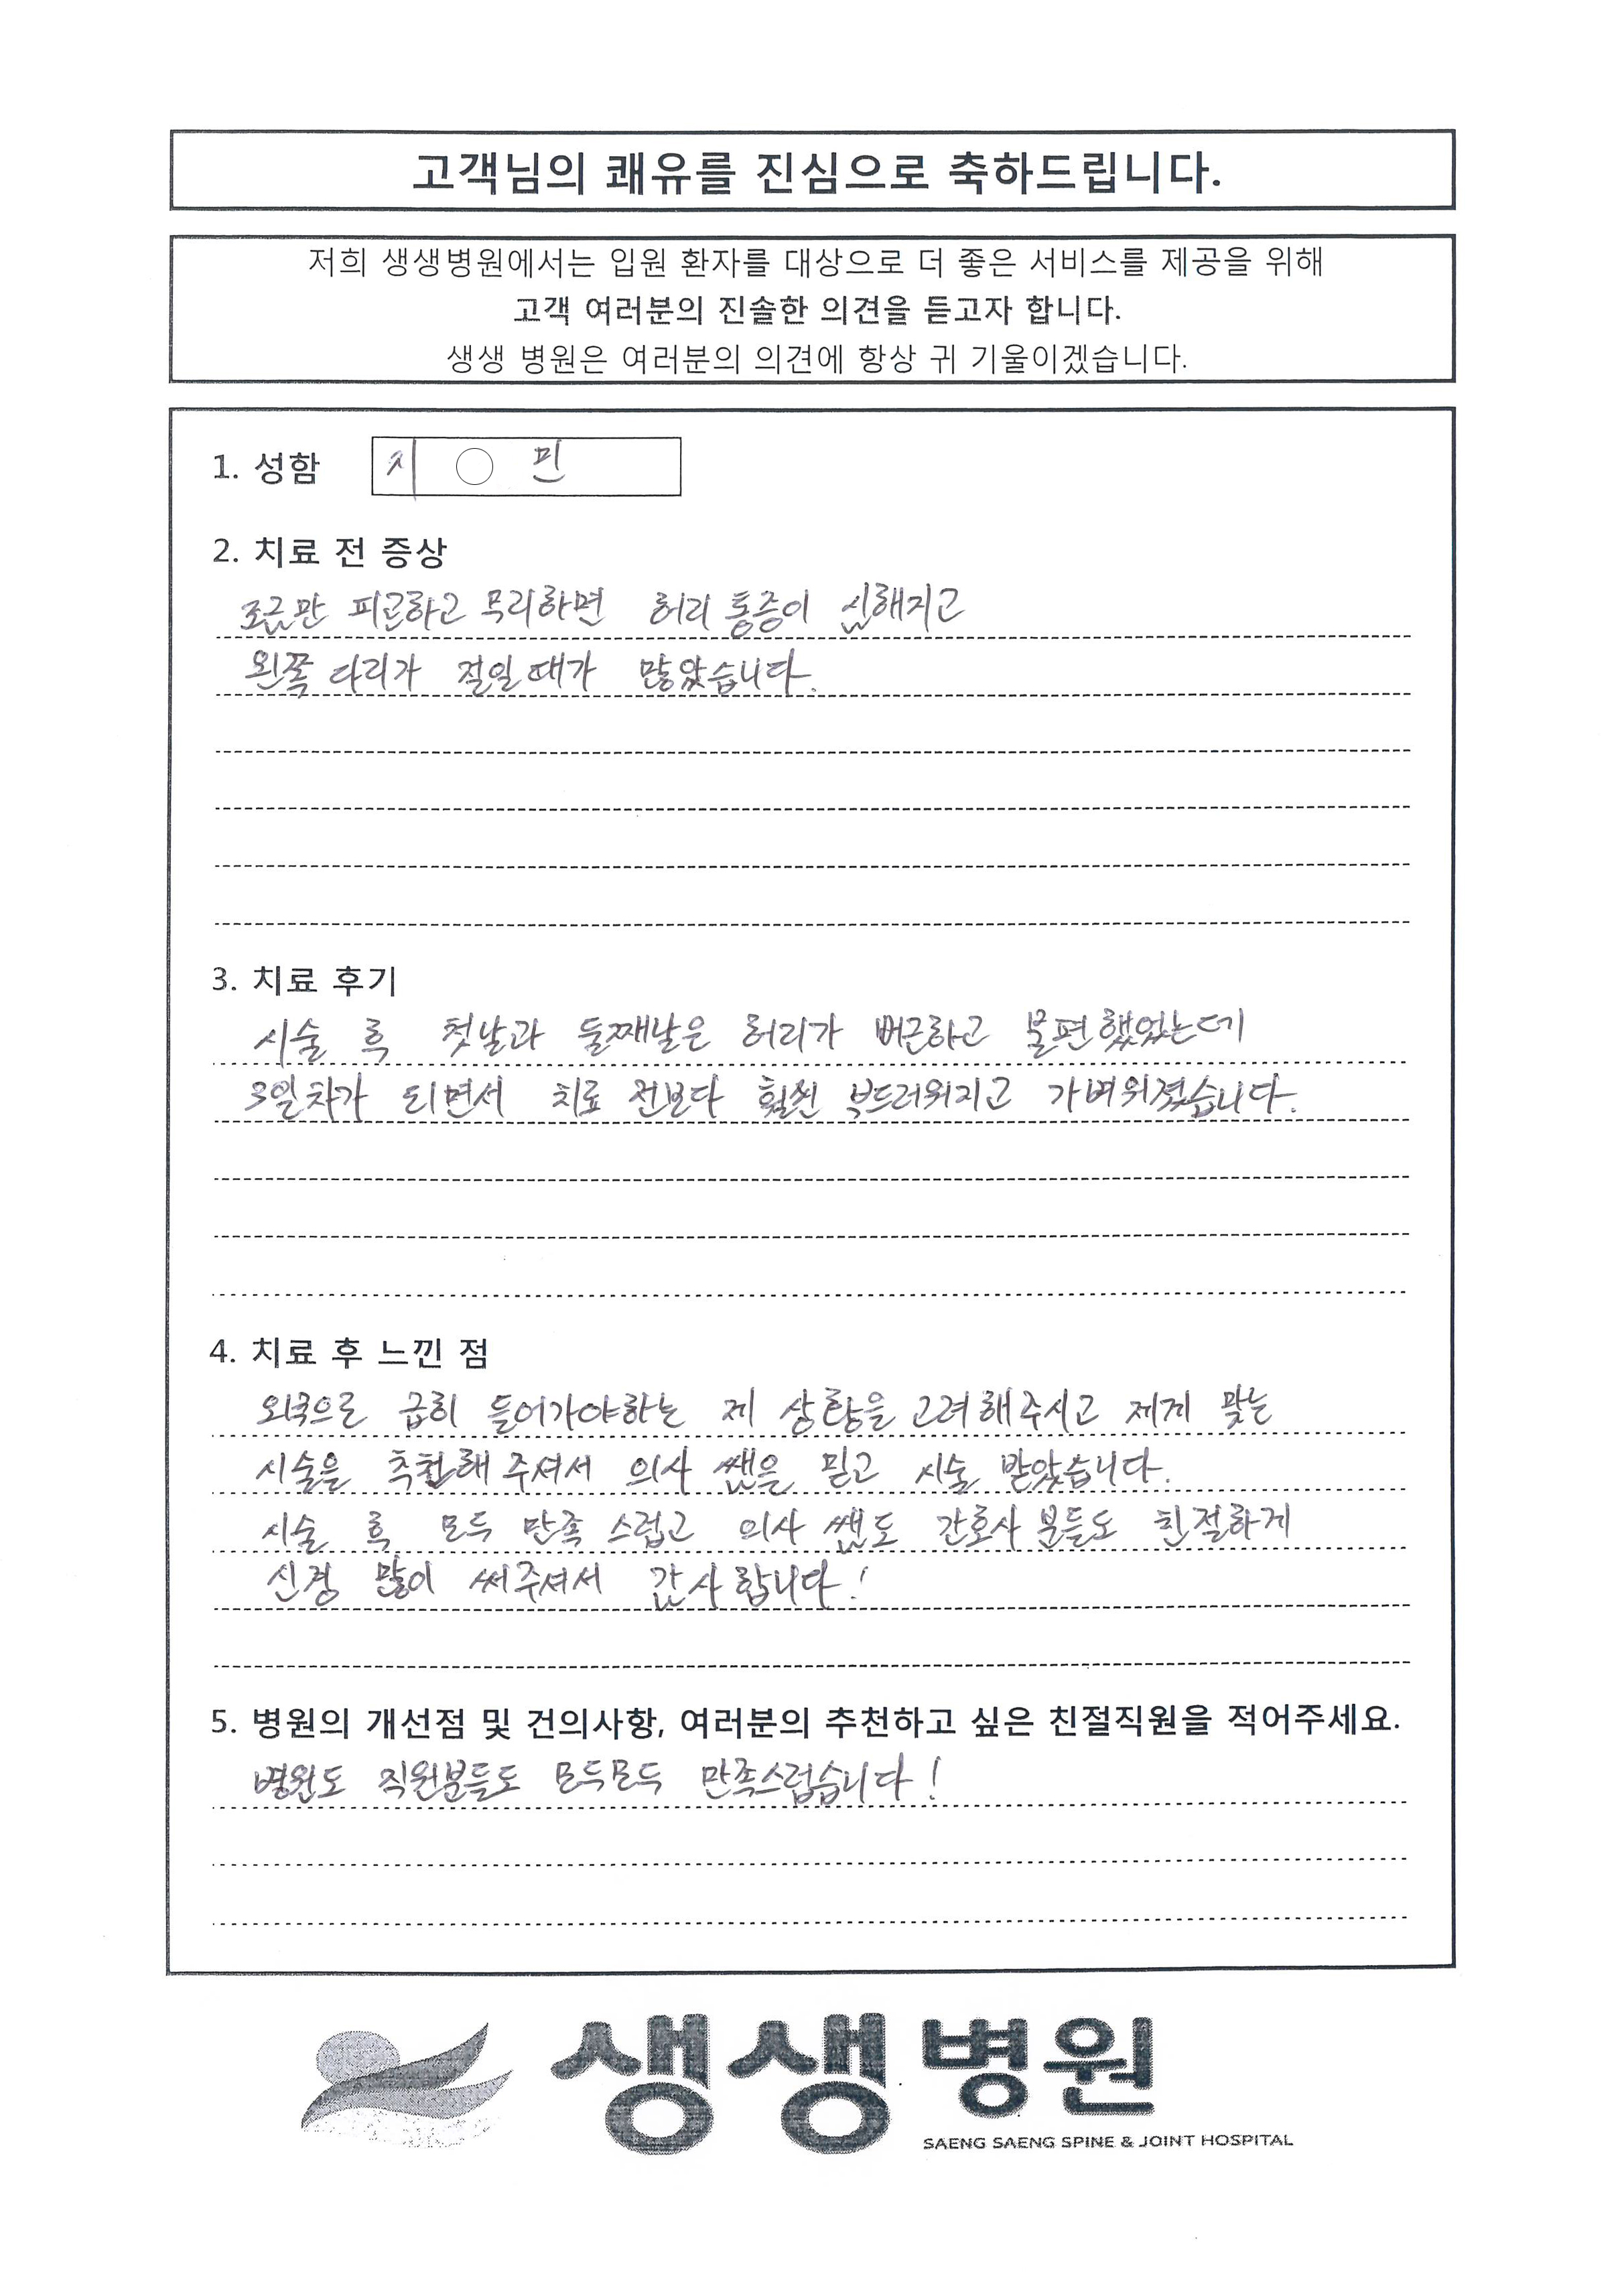 고객님의 쾌유를 진심으로 축하드립니다.
저희 생생병원에서는 입원 환자를 대상으로 더 좋은 서비스를 제공을 위해
고객 여러분의 진솔한 의견을 듣고자 합니다.
생생 병원은 여러분의 의견에 항상 귀 기울이겠습니다.
1. 성함 지 ○ 민
2. 치료 전 증상
조금만 피곤하고 무리하면 허리 통증이 심해지고
왼쪽 다리가 절일때가 많았습니다.
3. 치료 후기
시술 후 첫날과 둘째날은 허리가 뻐근하고 불편했었는데
3일차가 되면서 치료 전보다 훨씬 부드러워지고 가벼워졌습니다.
4. 치료 후 느낀 점
외국으로 급히 들어가야하는 제 상황을 고려해주시고 제게 맞는
시술을 추천해 주셔서 의사 쌤을 믿고 시술 받았습니다.
시술 후 모두 만족 스럽고 의사 쌤도 간호사 분들도 친절하게
신경 많이 써주셔서 감사합니다!
5. 병원의 개선점 및 건의사항, 여러분의 추천하고 싶은 친절직원을 적어주세요.
병원도 직원분들도 모두모두 만족스럽습니다!
생생병원
SAENG SAENG SPINE & JOINT HOSPITAL